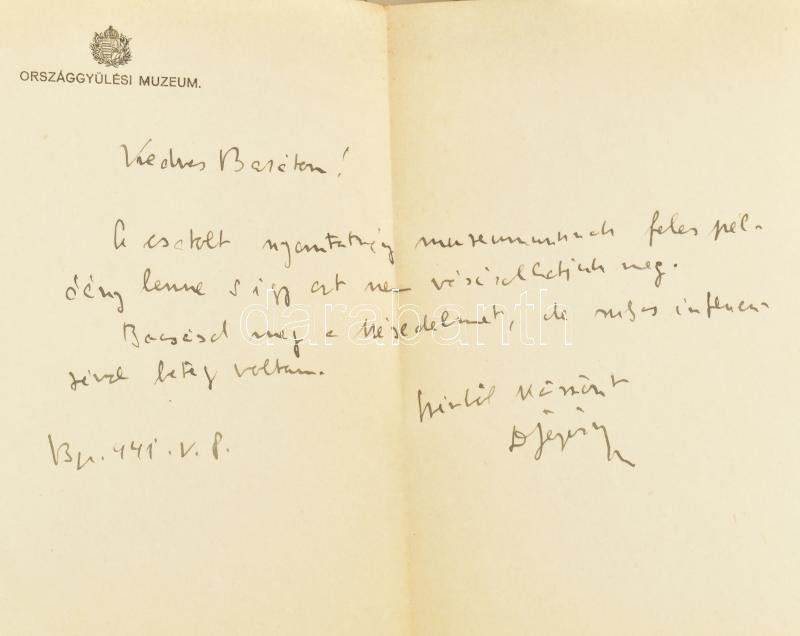 ORSZÁGGYÜLÉSI MUZEUM.
Kedves Barátom!
A csatolt nyomtatvány muzeumunknak feles pél-
dány lenne s így ezt nem vásárolhatjuk meg.
Bocsásd meg a késedelmet, de súlyos influen-
zával beteg voltam.
Szívből köszönt
Bp. 941. V. 8.
darabanth